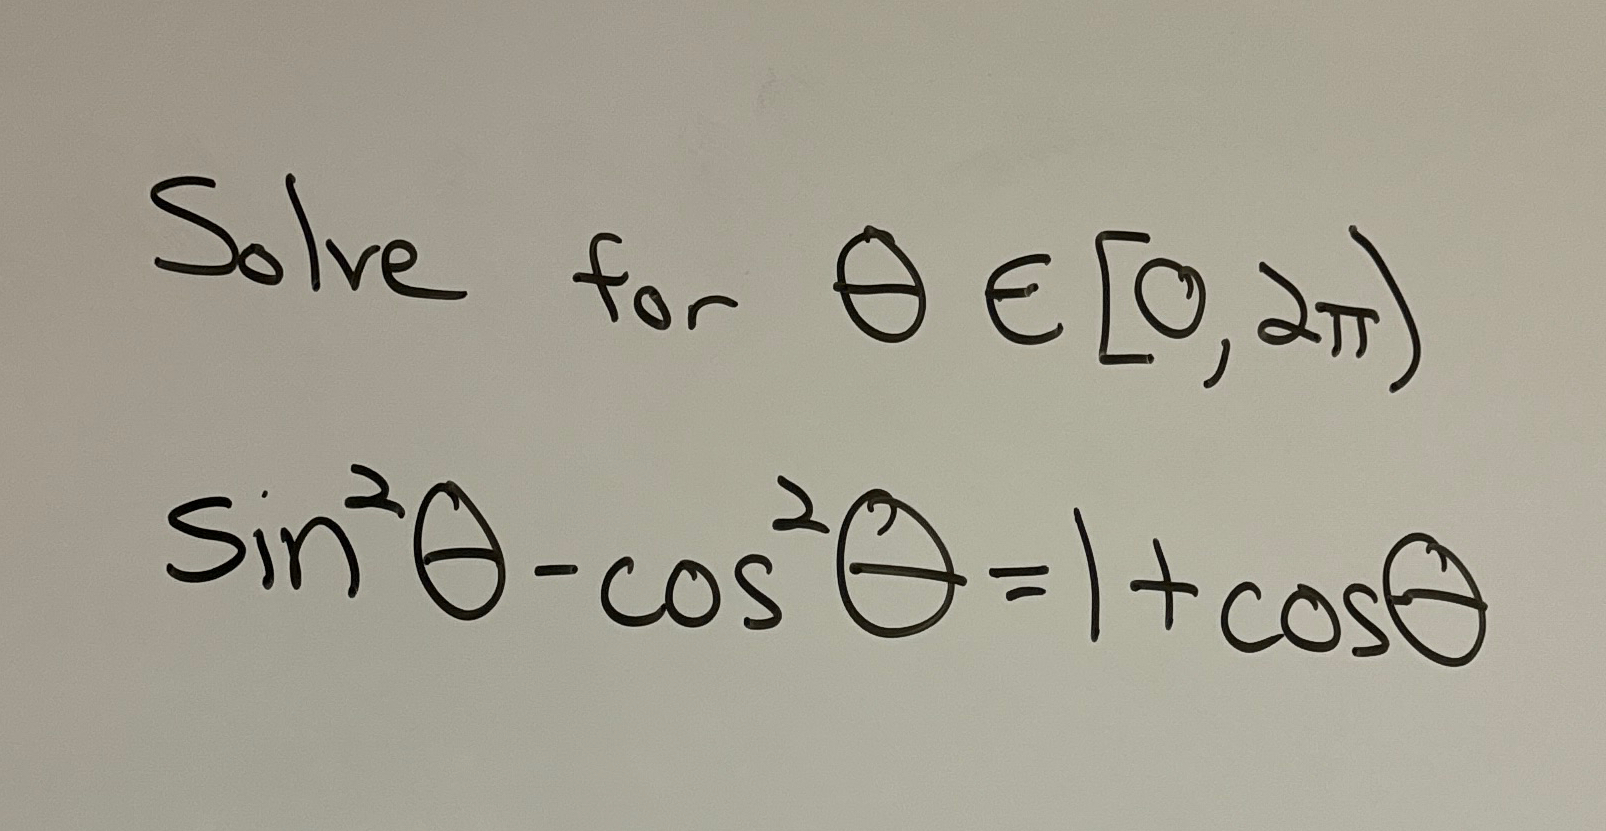 Solve for θ ∈ [0, 2π)
sin²θ - cos²θ = 1 + cosθ